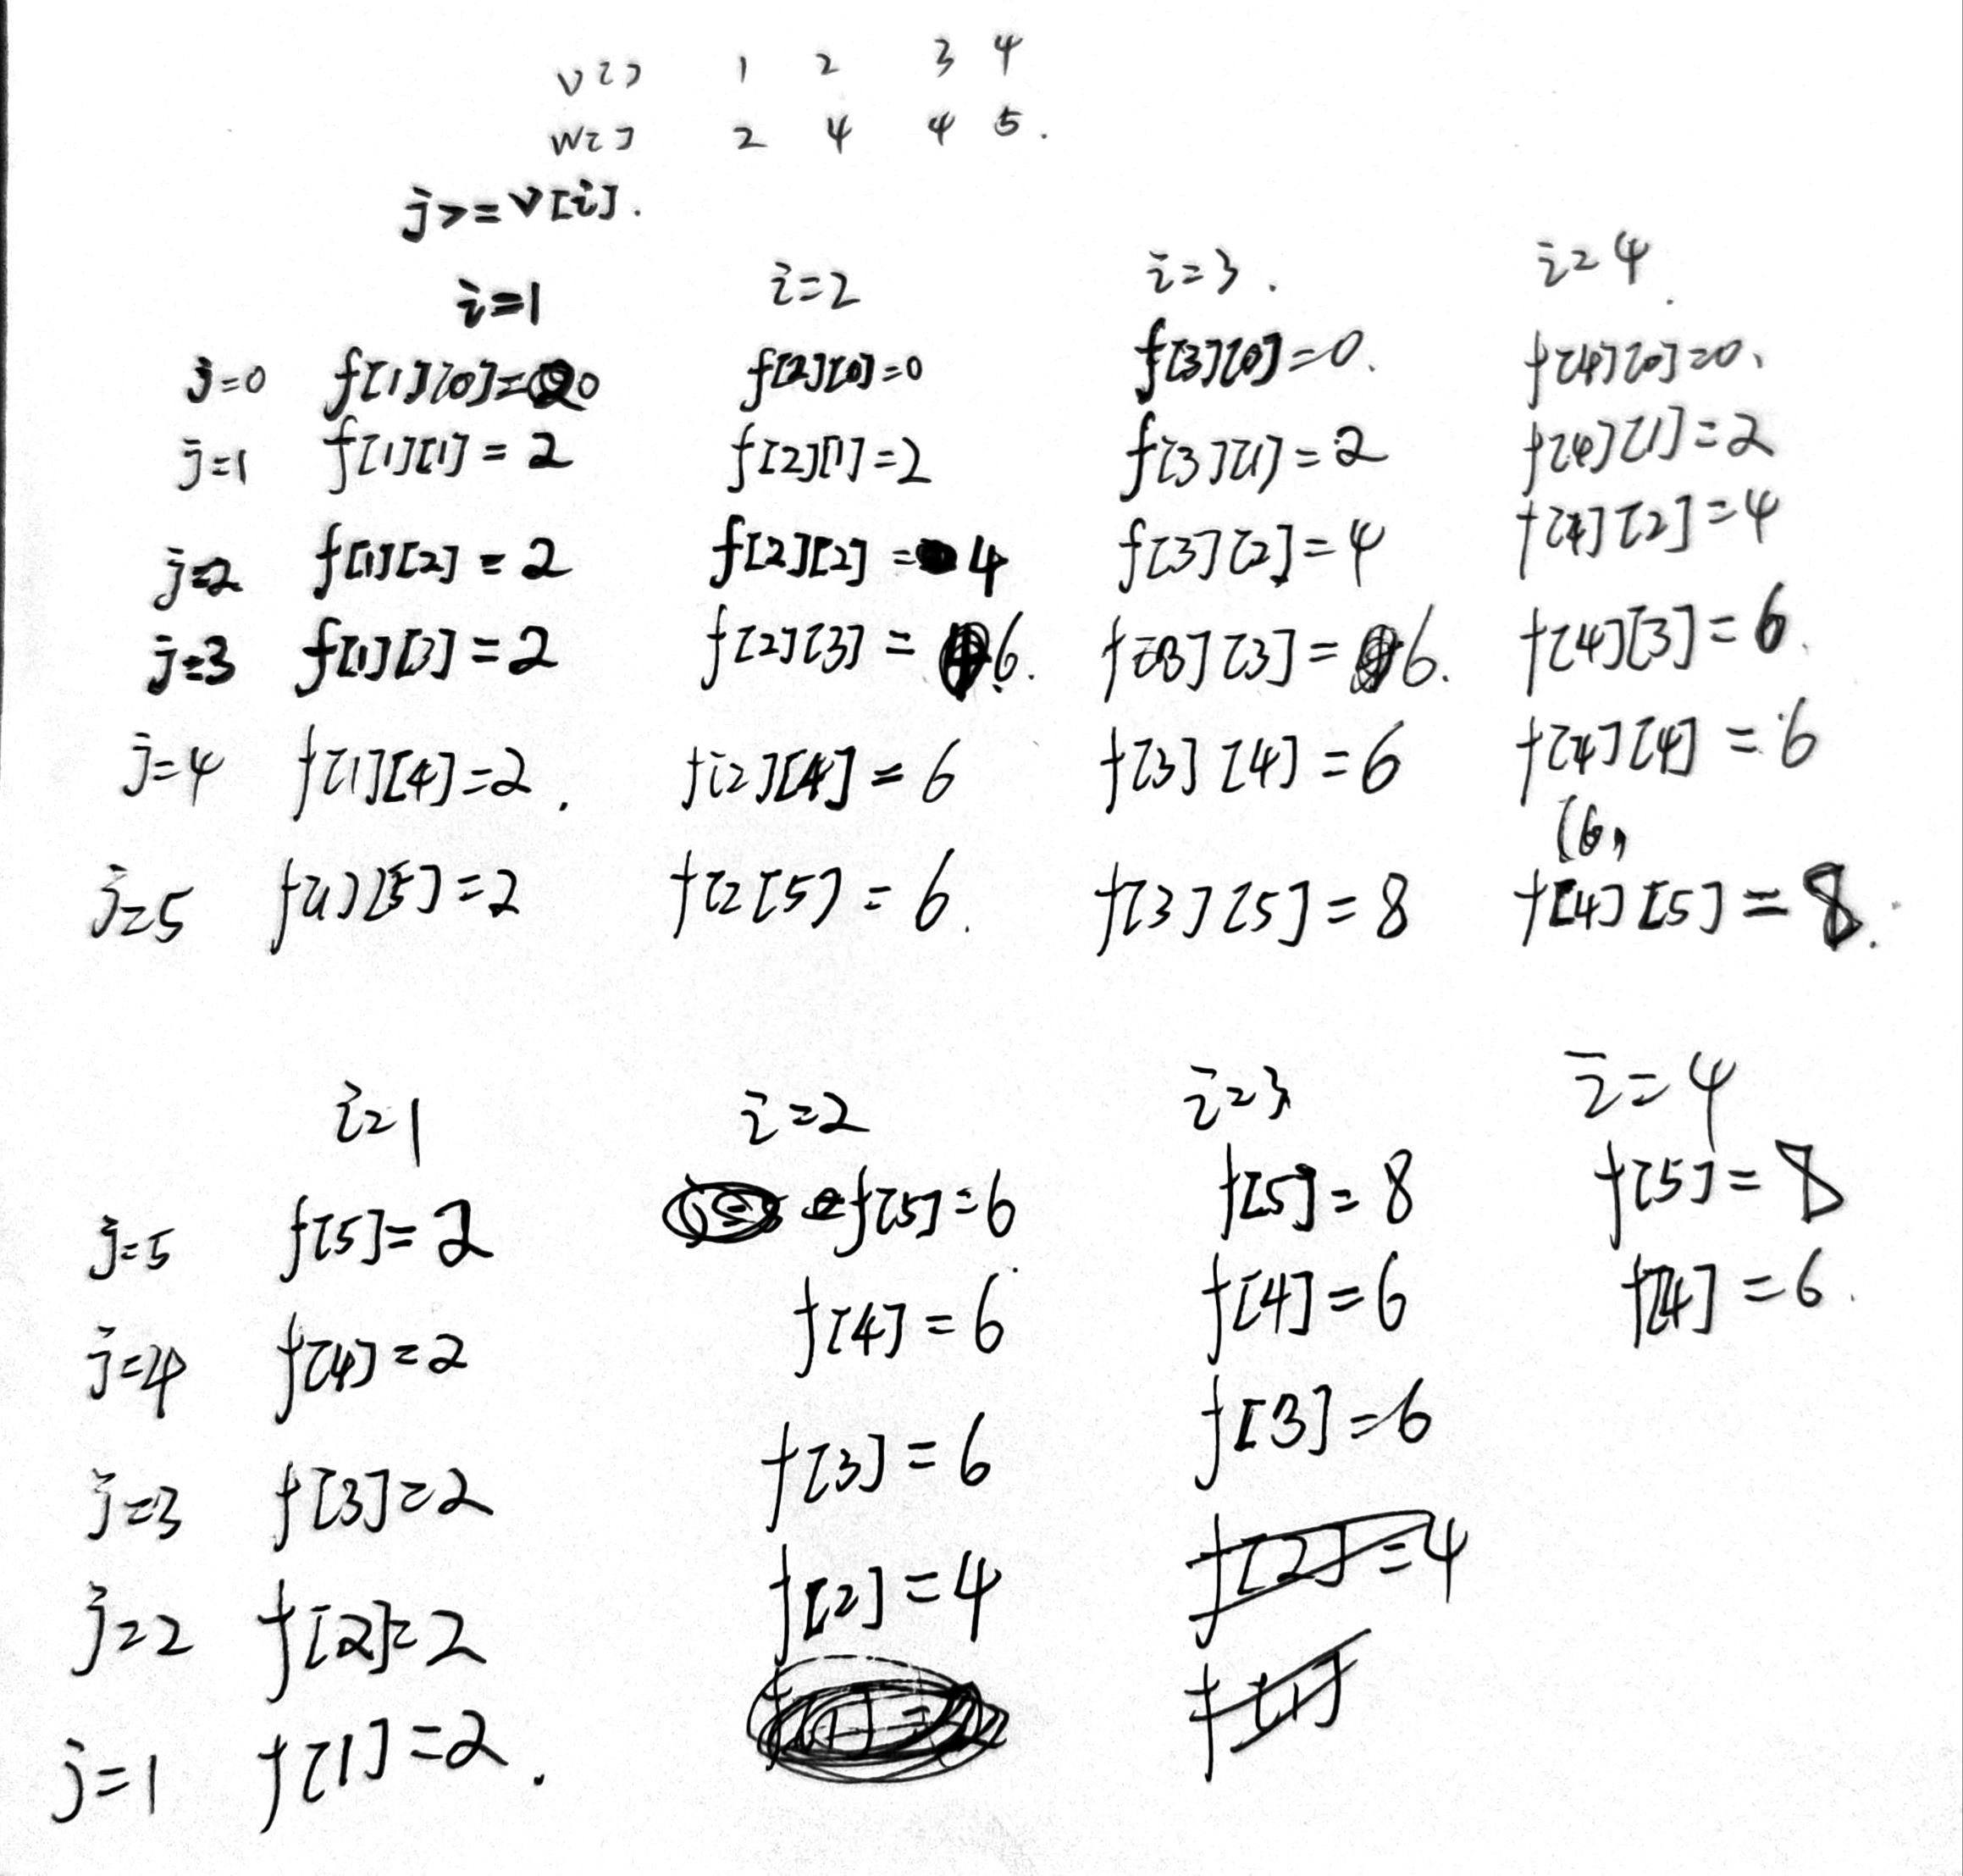 v[] 1 2 3 4
w[] 2 4 4 5.
j>=v[i].
i=1 i=2 i=3. i=4.
j=0 f[1][0]=0 f[2][0]=0 f[3][0]=0. f[4][0]=0.
j=1 f[1][1]=2 f[2][1]=2 f[3][1]=2 f[4][1]=2
j=2 f[1][2]=2 f[2][2]=4 f[3][2]=4 f[4][2]=4
j=3 f[1][3]=2 f[2][3]=6. f[3][3]=6. f[4][3]=6.
j=4 f[1][4]=2. f[2][4]=6 f[3][4]=6 f[4][4]=6
(6,
j=5 f[1][5]=2 f[2[5]=6. f[3][5]=8 f[4][5]=8.
i=1 i=2 i=3 i=4
j=5 f[5]=2 f[5]=6 f[5]=8 f[5]=8
j=4 f[4]=2 f[4]=6 f[4]=6 f[4]=6.
j=3 f[3]=2 f[3]=6 f[3]=6
j=2 f[2]=2 f[2]=4 f[2]=4
j=1 f[1]=2. f[1]